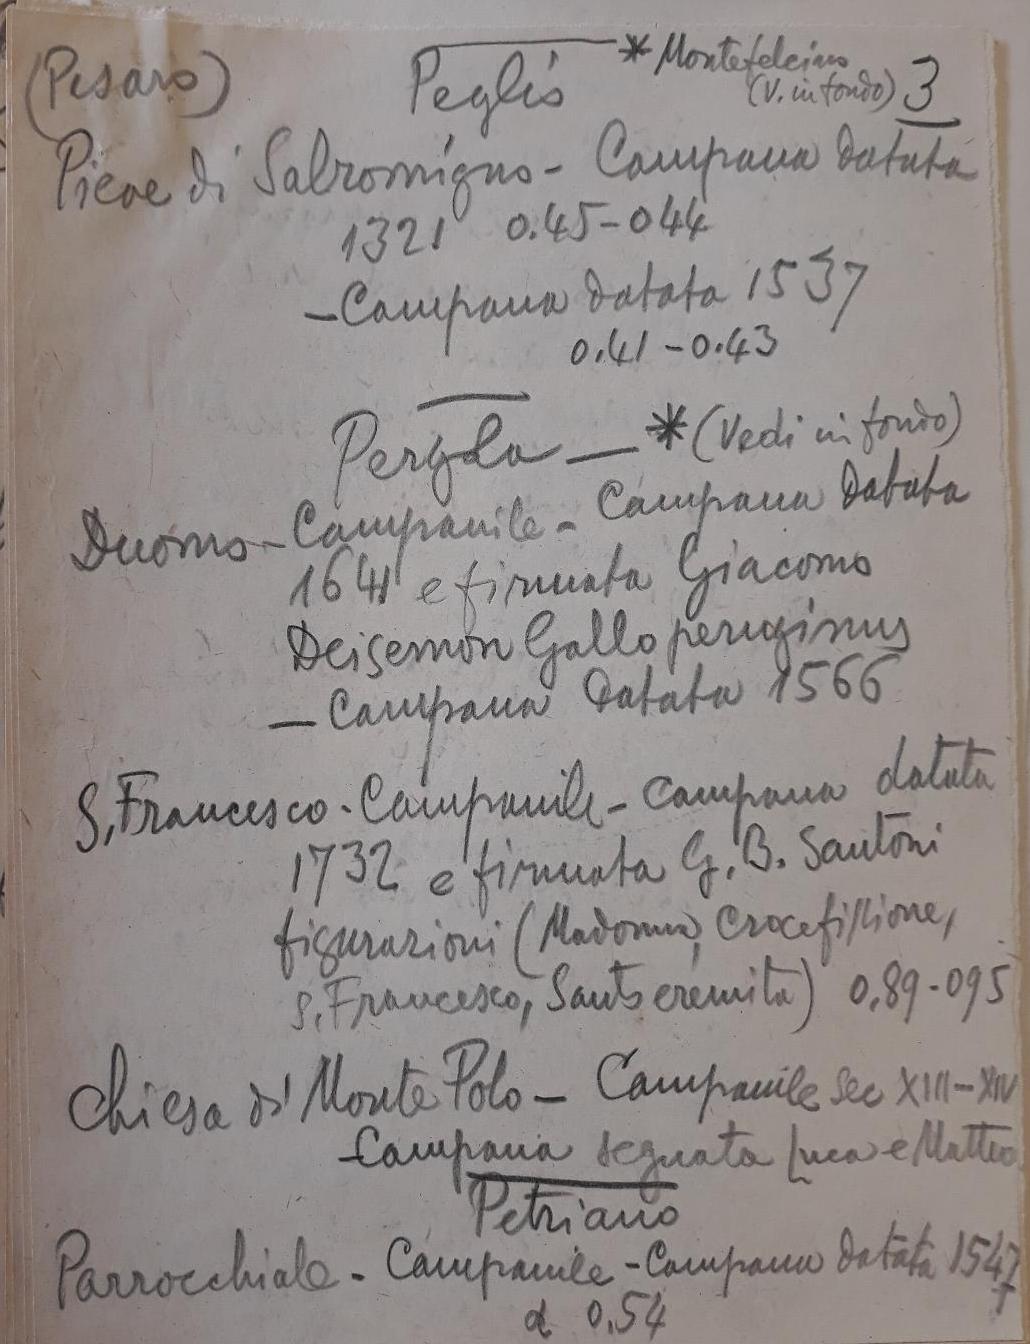 (Pesaro) Peglio * Montefelcino
(V. in fondo) 3
Pieve di Salromigno - Campana datata
1321 0.45-044
- Campana datata 1537
0.41-0.43
Pergola - * (Vedi in fondo)
Duomo - Campanile - Campana Datata
1641 e firmata Giacomo
Gallo peruginus
- Campana Datata 1566
S, Francesco - Campanile - Campana datata
1732 e firmata G. B. Santoni
figurazioni (Madonna, Crocefissione,
S, Francesco, Santo eremita) 0,89-095
Chiesa di Monte Polo - Campanile Sec XIII-XIV
- Campana segnata Luca e Matteo
Petriano
Parrocchiale - Campanile - Campana datata 1547
d 0,54